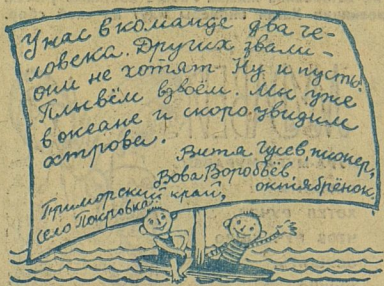 У нас в команде два че-
ловека. Других звали –
они не хотят. Ну и пусть.
Плывём вдвоём. Мы уже
в океане и скоро увидим
острова.
Витя Гусев, пионер,
Вова Воробьёв, октябрёнок,
Приморский край,
село Покровка